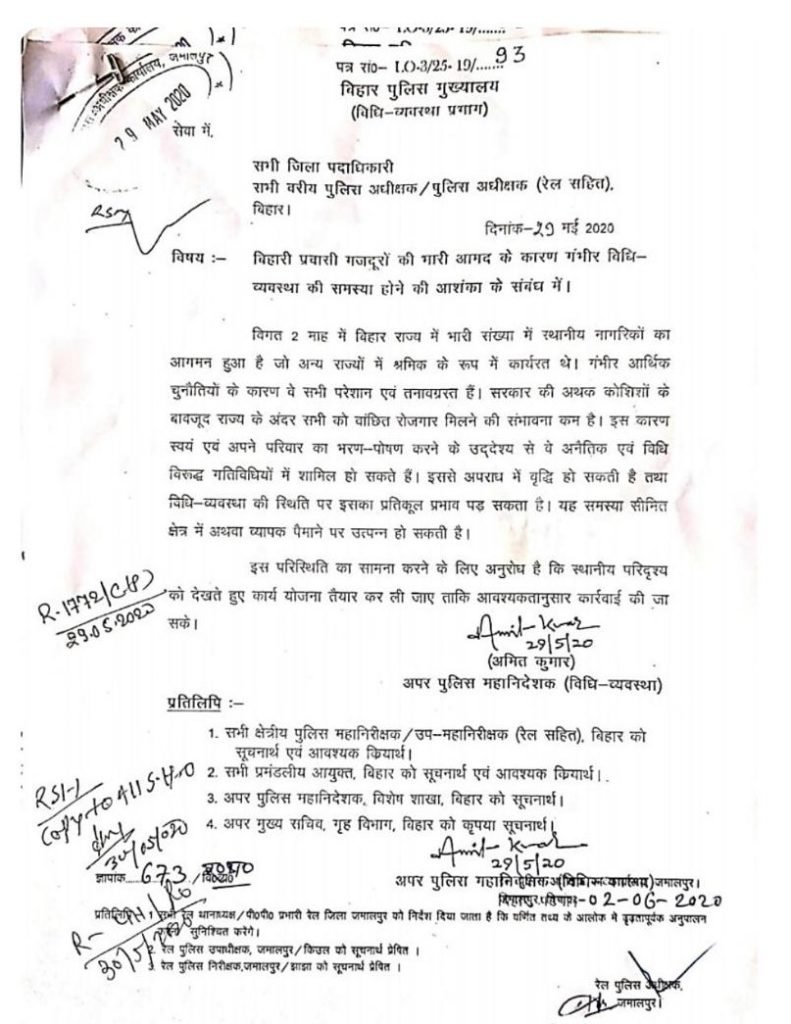 पत्र सं०– L.O-3/25-19/.......93
बिहार पुलिस मुख्यालय
(विधि–व्यवस्था प्रभाग)
कार्यालय, जमालपुर
29 MAY 2020
सेवा में,
सभी जिला पदाधिकारी
सभी वरीय पुलिस अधीक्षक/पुलिस अधीक्षक (रेल सहित),
बिहार।
दिनांक-29 मई 2020
विषय :– बिहारी प्रवासी मजदूरों की भारी आमद के कारण गंभीर विधि–
व्यवस्था की समस्या होने की आशंका के संबंध में।
विगत 2 माह में बिहार राज्य में भारी संख्या में स्थानीय नागरिकों का
आगमन हुआ है जो अन्य राज्यों में श्रमिक के रूप में कार्यरत थे। गंभीर आर्थिक
चुनौतियों के कारण वे सभी परेशान एवं तनावग्रस्त हैं। सरकार की अथक कोशिशों के
बावजूद राज्य के अंदर सभी को वांछित रोजगार मिलने की संभावना कम है। इस कारण
स्वयं एवं अपने परिवार का भरण–पोषण करने के उद्देश्य से वे अनैतिक एवं विधि
विरूद्ध गतिविधियों में शामिल हो सकते हैं। इससे अपराध में वृद्धि हो सकती है तथा
विधि–व्यवस्था की स्थिति पर इसका प्रतिकूल प्रभाव पड़ सकता है। यह समस्या सीमित
क्षेत्र में अथवा व्यापक पैमाने पर उत्पन्न हो सकती है।
इस परिस्थिति का सामना करने के लिए अनुरोध है कि स्थानीय परिदृश्य
को देखते हुए कार्य योजना तैयार कर ली जाए ताकि आवश्यकतानुसार कार्रवाई की जा
सके।
R-1772/
29.05.2020
Amit Kumar
29/5/20
(अमित कुमार)
अपर पुलिस महानिदेशक (विधि–व्यवस्था)
प्रतिलिपि :–
1. सभी क्षेत्रीय पुलिस महानिरीक्षक/उप–महानिरीक्षक (रेल सहित), बिहार को
सूचनार्थ एवं आवश्यक कियार्थ।
2. सभी प्रमंडलीय आयुक्त, बिहार को सूचनार्थ एवं आवश्यक कियार्थ।
3. अपर पुलिस महानिदेशक, विशेष शाखा, बिहार को सूचनार्थ।
4. अपर मुख्य सचिव, गृह विभाग, बिहार को कृपया सूचनार्थ।
Copy to All S.H.O
30/05/020
Amit Kumar
29/5/20
अपर पुलिस
जमालपुर।
ज्ञापांक 673
02-06-2020
प्रतिलिपि 1 सभी रेल थानाध्यक्ष/पी०पी० प्रभारी रेल जिला जमालपुर को निर्देश दिया जाता है कि वर्णित तथ्य के आलोक में दृढ़तापूर्वक अनुपालन
सुनिश्चित करेंगे।
2. रेल पुलिस उपाधीक्षक, जमालपुर/किउल को सूचनार्थ प्रेषित ।
3. रेल पुलिस निरीक्षक,जमालपुर/झाझा को सूचनार्थ प्रेषित ।
30/5/2020
रेल पुलिस अधीक्षक,
जमालपुर।